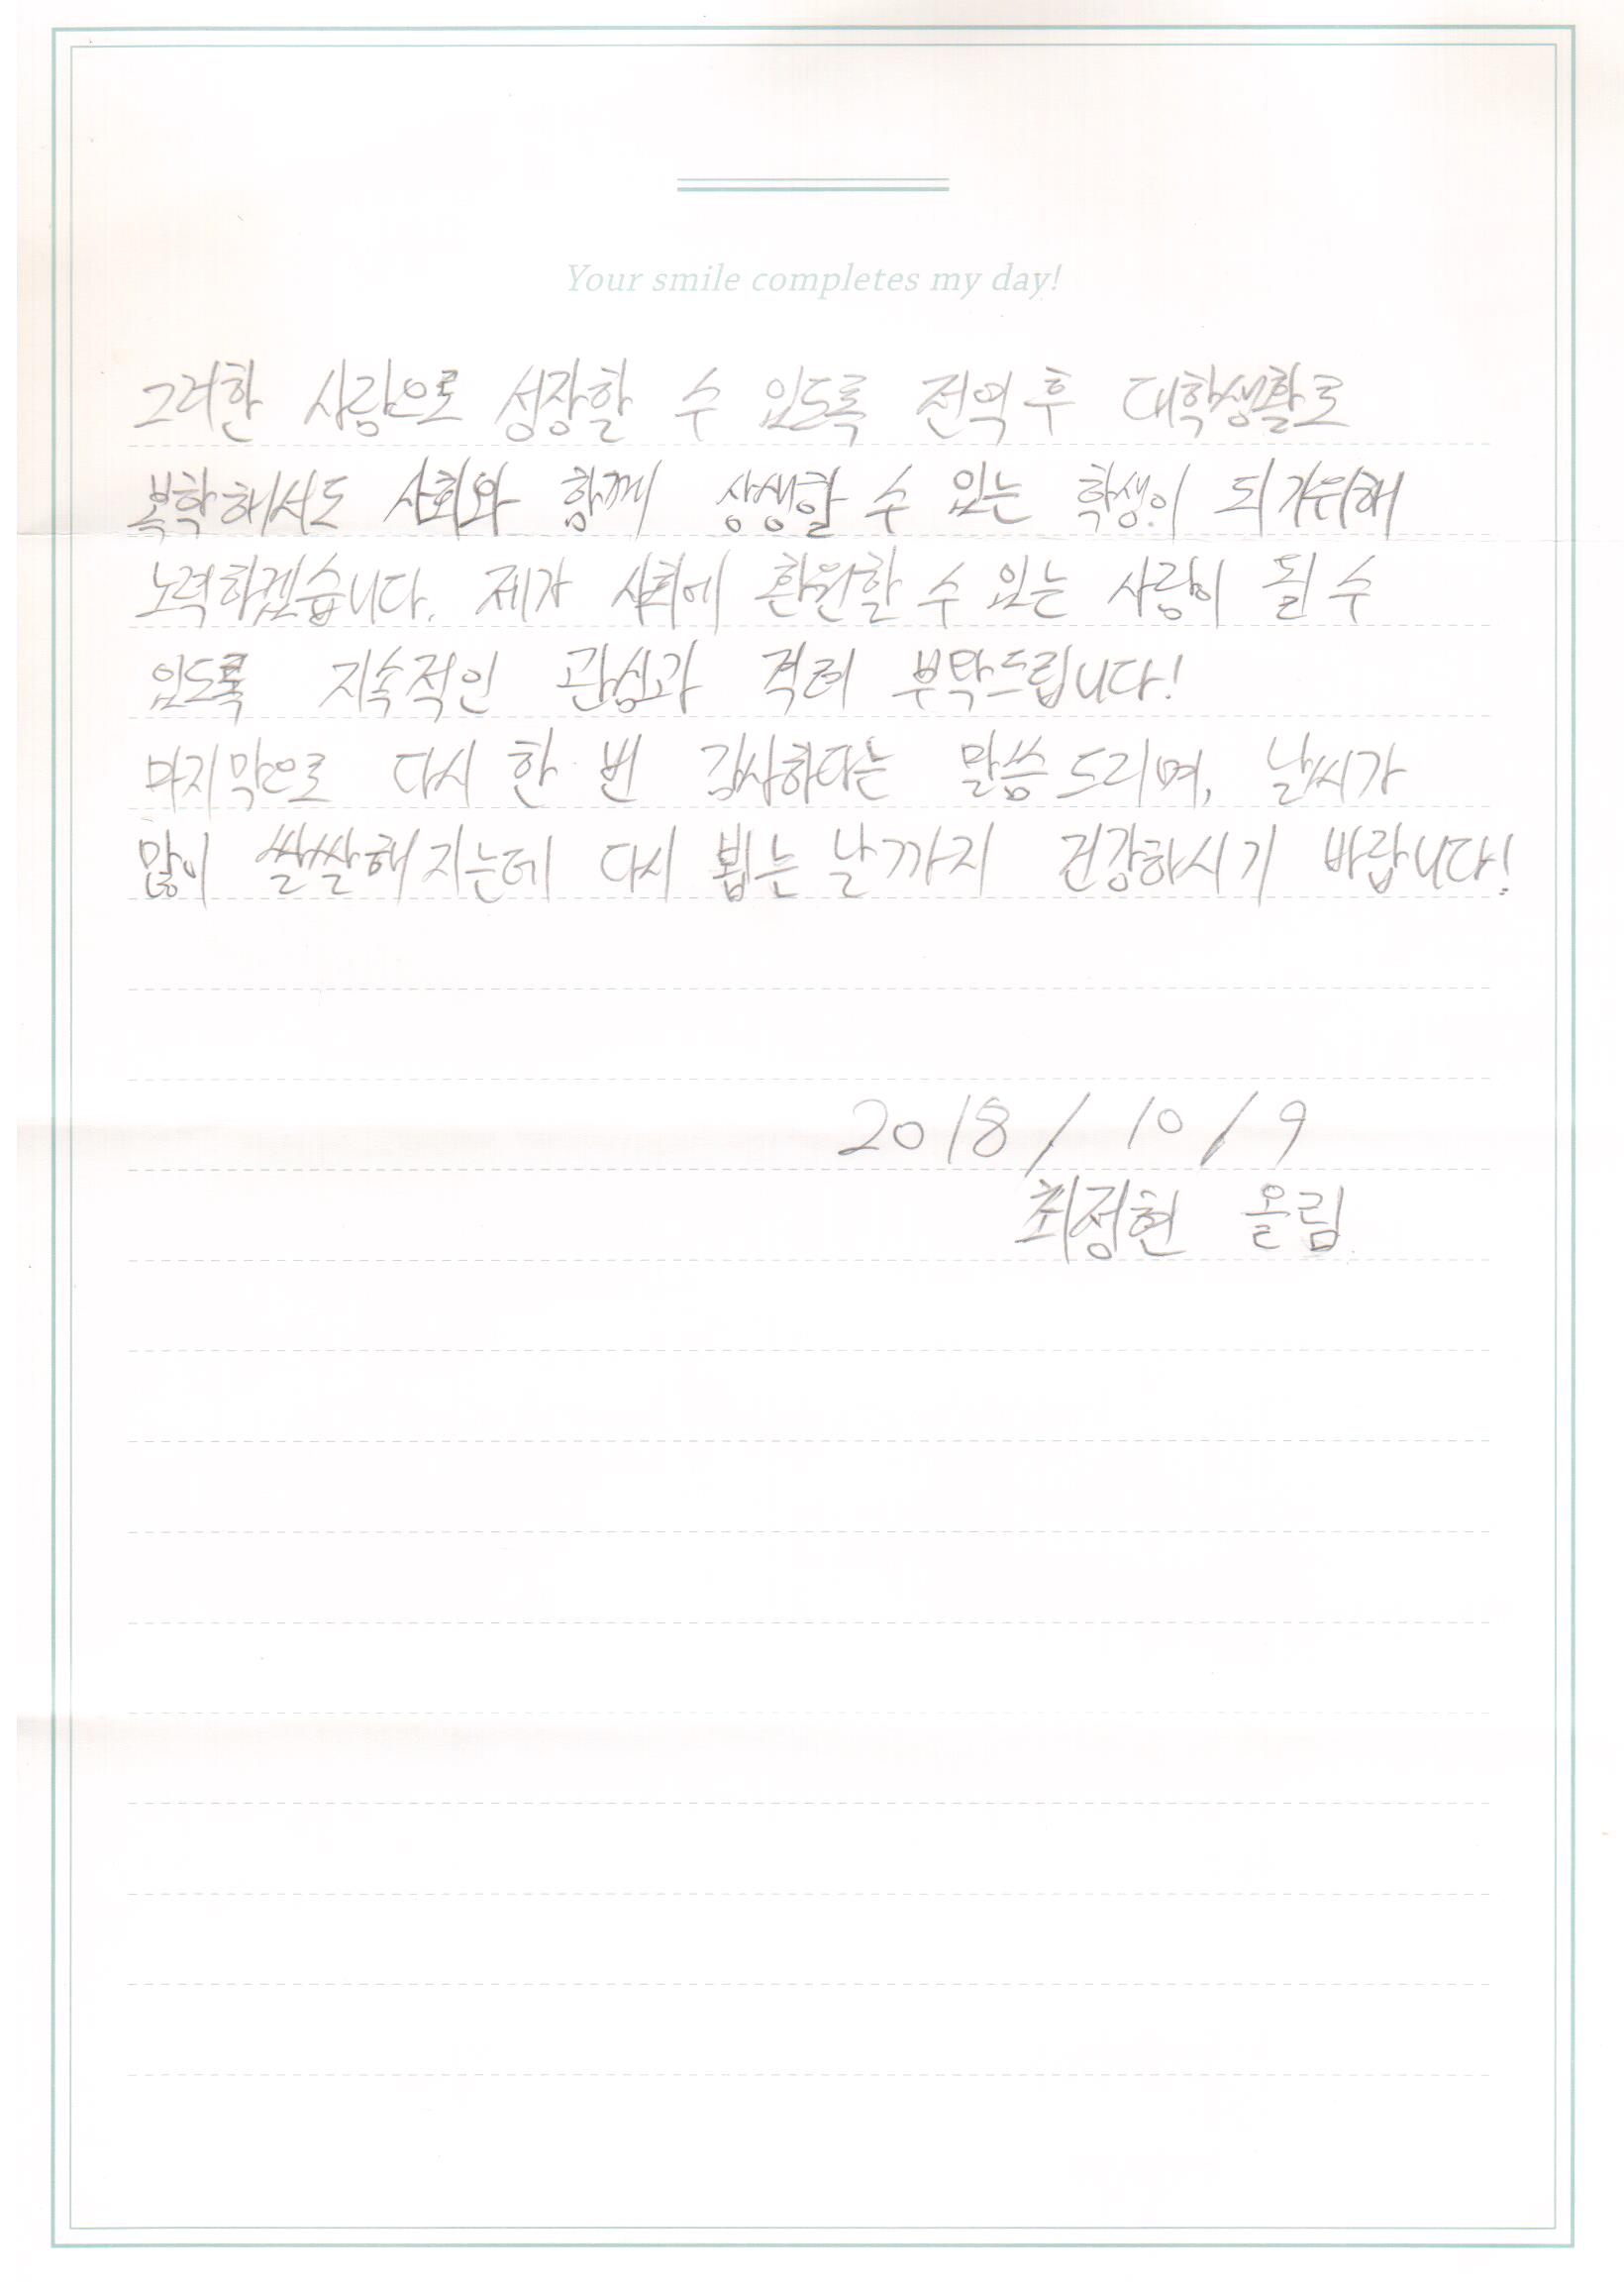 Your smile completes my day!
그러한 사람으로 성장할 수 있도록 전역 후 대학생활로
복학해서도 사회와 함께 상생할 수 있는 학생이 되기위해
노력하겠습니다. 제가 사회에 환원할 수 있는 사람이 될 수
있도록 지속적인 관심과 격려 부탁드립니다!
마지막으로 다시 한 번 감사하다는 말씀드리며, 날씨가
많이 쌀쌀해지는데 다시 뵙는 날까지 건강하시기 바랍니다!
2018/10/9
최정현 올림